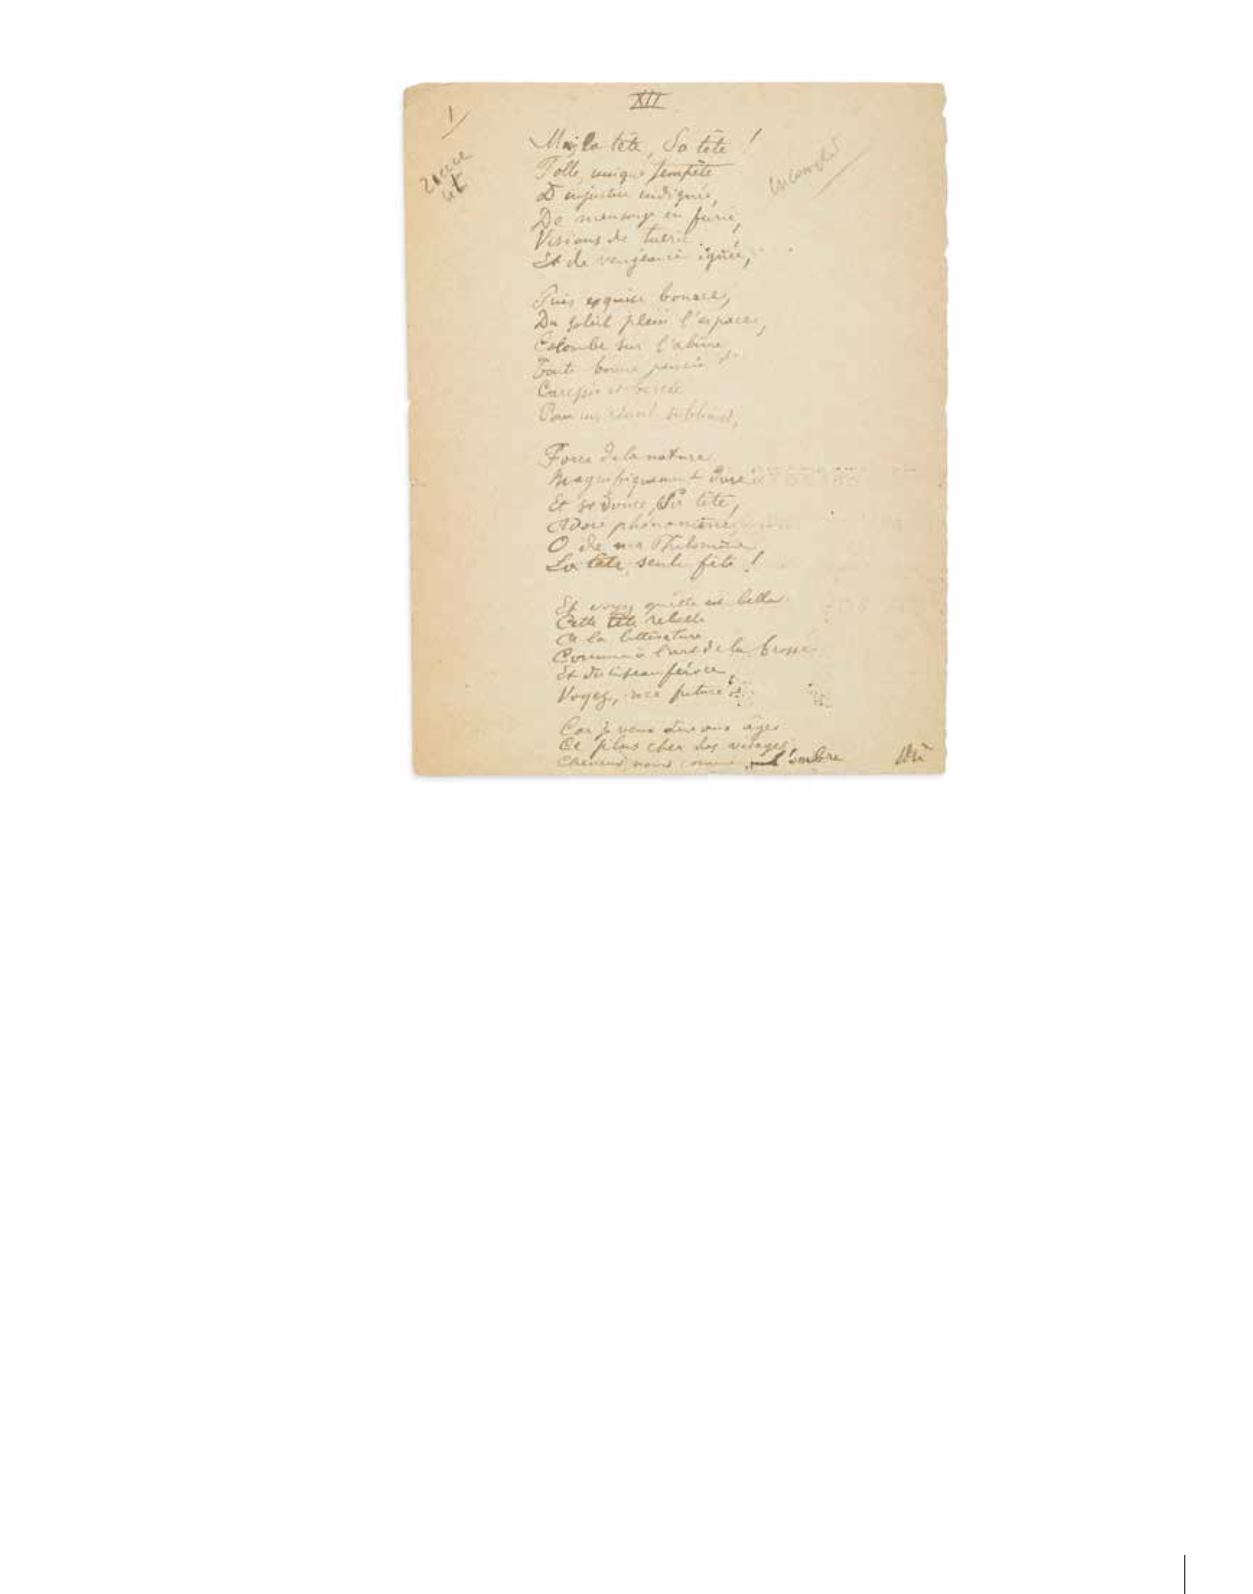 XII
1
incomplet
Mais la tête, Sa tête !
Folle, unique tempête
D'injustice indignée,
De mensonge en furie,
Visions de tuerie
Et de vengeance ignée,
Puis exquise bonace,
Du soleil plein l'espace,
Colombe sur l'abîme,
Toute bonne pensée
Caressée et bercée
Pour un réveil sublime,
Force de la nature
Magnifiquement dure
Et si douce, Sa tête,
Adoré phénomène
O de ma Philomène
La tête, seule fête !
Et voyez qu'elle est belle
Cette tête rebelle
A la littérature
Comme à l'art de la brosse
Et du ciseau féroce,
Voyez, race future !
Car je veux dire aux âges
Ce plus cher des visages
Cheveux noirs comme l'ombre